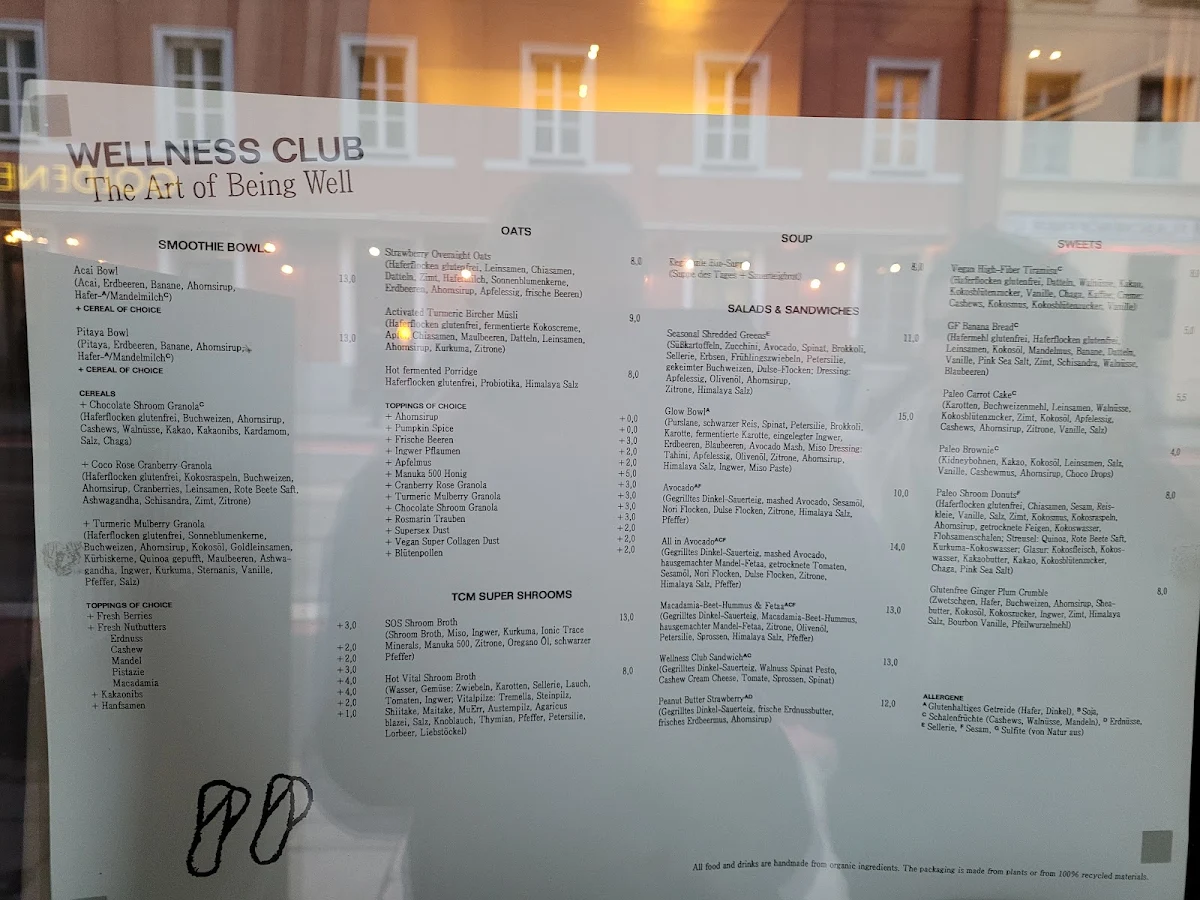 WELLNESS CLUB
The Art of Being Well
GOLDENE
SMOOTHIE BOWL
Acai Bowl 13,0
(Acai, Erdbeeren, Banane, Ahornsirup,
Hafer-ᴬ/Mandelmilchᶜ)
+ CEREAL OF CHOICE
Pitaya Bowl 13,0
(Pitaya, Erdbeeren, Banane, Ahornsirup;
Hafer-ᴬ/Mandelmilchᶜ)
+ CEREAL OF CHOICE
CEREALS
+ Chocolate Shroom Granolaᶜ
(Haferflocken glutenfrei, Buchweizen, Ahornsirup,
Cashews, Walnüsse, Kakao, Kakaonibs, Kardamom,
Salz, Chaga)
+ Coco Rose Cranberry Granola
(Haferflocken glutenfrei, Kokosraspeln, Buchweizen,
Ahornsirup, Cranberries, Leinsamen, Rote Beete Saft,
Ashwagandha, Schisandra, Zimt, Zitrone)
+ Turmeric Mulberry Granola
(Haferflocken glutenfrei, Sonnenblumenkerne,
Buchweizen, Ahornsirup, Kokosöl, Goldleinsamen,
Kürbiskerne, Quinoa gepufft, Maulbeeren, Ashwa-
gandha, Ingwer, Kurkuma, Sternanis, Vanille,
Pfeffer, Salz)
TOPPINGS OF CHOICE
+ Fresh Berries +3,0
+ Fresh Nutbutters
Erdnuss +2,0
Cashew +2,0
Mandel +3,0
Pistazie +4,0
Macadamia +4,0
+ Kakaonibs +2,0
+ Hanfsamen +1,0
OATS
Strawberry Overnight Oats 8,0
(Haferflocken glutenfrei, Leinsamen, Chiasamen,
Datteln, Zimt, Hafermilch, Sonnenblumenkerne,
Erdbeeren, Ahornsirup, Apfelessig, frische Beeren)
Activated Turmeric Bircher Müsli 9,0
(Haferflocken glutenfrei, fermentierte Kokoscreme,
Chiasamen, Maulbeeren, Datteln, Leinsamen,
Ahornsirup, Kurkuma, Zitrone)
Hot fermented Porridge 8,0
Haferflocken glutenfrei, Probiotika, Himalaya Salz
TOPPINGS OF CHOICE
+ Ahornsirup +0,0
+ Pumpkin Spice +0,0
+ Frische Beeren +3,0
+ Ingwer Pflaumen +2,0
+ Apfelmus +2,0
+ Manuka 500 Honig +5,0
+ Cranberry Rose Granola +3,0
+ Turmeric Mulberry Granola +3,0
+ Chocolate Shroom Granola +3,0
+ Rosmarin Trauben +3,0
+ Supersex Dust +2,0
+ Vegan Super Collagen Dust +2,0
+ Blütenpollen +2,0
TCM SUPER SHROOMS
SOS Shroom Broth 13,0
(Shroom Broth, Miso, Ingwer, Kurkuma, Ionic Trace
Minerals, Manuka 500, Zitrone, Oregano Öl, schwarzer
Pfeffer)
Hot Vital Shroom Broth 8,0
(Wasser, Gemüse: Zwiebeln, Karotten, Sellerie, Lauch,
Tomaten, Ingwer; Vitalpilze: Tremella, Steinpilz,
Shiitake, Maitake, MuErr, Austempilz, Agaricus
blazei, Salz, Knoblauch, Thymian, Pfeffer, Petersilie,
Lorbeer, Liebstöckel)
SOUP
8,0
(Suppe des Tages + Sauerteigbrot)
SALADS & SANDWICHES
Seasonal Shredded Greensᴱ 11,0
(Süßkartoffeln, Zucchini, Avocado, Spinat, Brokkoli,
Sellerie, Erbsen, Frühlingszwiebeln, Petersilie,
gekeimter Buchweizen, Dulse-Flocken; Dressing:
Apfelessig, Olivenöl, Ahornsirup,
Zitrone, Himalaya Salz)
Glow Bowlᴬ 15,0
(Purslane, schwarzer Reis, Spinat, Petersilie, Brokkoli,
Karotte, fermentierte Karotte, eingelegter Ingwer,
Erdbeeren, Blaubeeren, Avocado Mash, Miso Dressing:
Tahini, Apfelessig, Olivenöl, Zitrone, Ahornsirup,
Himalaya Salz, Ingwer, Miso Paste)
Avocadoᴬᶠ 10,0
(Gegrilltes Dinkel-Sauerteig, mashed Avocado, Sesamöl,
Nori Flocken, Dulse Flocken, Zitrone, Himalaya Salz,
Pfeffer)
All in Avocadoᴬᶜᶠ 14,0
(Gegrilltes Dinkel-Sauerteig, mashed Avocado,
hausgemachter Mandel-Fetaa, getrocknete Tomaten,
Sesamöl, Nori Flocken, Dulse Flocken, Zitrone,
Himalaya Salz, Pfeffer)
Macadamia-Beet-Hummus & Fetaaᴬᶜᶠ 13,0
(Gegrilltes Dinkel-Sauerteig, Macadamia-Beet-Hummus,
hausgemachter Mandel-Fetaa, Zitrone, Olivenöl,
Petersilie, Sprossen, Himalaya Salz, Pfeffer)
Wellness Club Sandwichᴬᶜ 13,0
(Gegrilltes Dinkel-Sauerteig, Walnuss Spinat Pesto,
Cashew Cream Cheese, Tomate, Sprossen, Spinat)
Peanut Butter Strawberryᴬᴰ 12,0
(Gegrilltes Dinkel-Sauerteig, frische Erdnussbutter,
frisches Erdbeermus, Ahornsirup)
SWEETS
Vegan High-Fiber Tiramisuᶜ
(Haferflocken glutenfrei, Datteln, Walnüsse, Kakao,
Kokosblütenzucker, Vanille, Chaga, Kaffee, Creme:
Cashews, Kokosmus, Kokosblütenzucker, Vanille)
GF Banana Breadᶜ 5,0
(Hafermehl glutenfrei, Haferflocken glutenfrei,
Leinsamen, Kokosöl, Mandelmus, Banane, Datteln,
Vanille, Pink Sea Salt, Zimt, Schisandra, Walnüsse,
Blaubeeren)
Paleo Carrot Cakeᶜ 5,5
(Karotten, Buchweizenmehl, Leinsamen, Walnüsse,
Kokosblütenzucker, Zimt, Kokosöl, Apfelessig,
Cashews, Ahornsirup, Zitrone, Vanille, Salz)
Paleo Brownieᶜ 4,0
(Kidneybohnen, Kakao, Kokosöl, Leinsamen, Salz,
Vanille, Cashewmus, Ahornsirup, Choco Drops)
Paleo Shroom Donutsᶠ 8,0
(Haferflocken glutenfrei, Chiasamen, Sesam, Reis-
kleie, Vanille, Salz, Zimt, Kokosmus, Kokosraspeln,
Ahornsirup, getrocknete Feigen, Kokoswasser,
Flohsamenschalen; Streusel: Quinoa, Rote Beete Saft,
Kurkuma-Kokoswasser; Glasur: Kokosfleisch, Kokos-
wasser, Kakaobutter, Kakao, Kokosblütenzucker,
Chaga, Pink Sea Salt)
Glutenfree Ginger Plum Crumble 8,0
(Zwetschgen, Hafer, Buchweizen, Ahornsirup, Shea-
butter, Kokosöl, Kokoszucker, Ingwer, Zimt, Himalaya
Salz, Bourbon Vanille, Pfeilwurzelmehl)
ALLERGENE
ᴬ Glutenhaltiges Getreide (Hafer, Dinkel), ᴮ Soja,
ᶜ Schalenfrüchte (Cashews, Walnüsse, Mandeln), ᴰ Erdnüsse,
ᴱ Sellerie, ᶠ Sesam, ᴳ Sulfite (von Natur aus)
All food and drinks are handmade from organic ingredients. The packaging is made from plants or from 100% recycled materials.